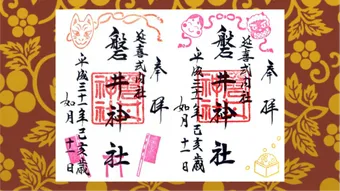 奉拝
延喜式内社
磐井神社
平成三十一年己亥歳
如月十一日
奉拝
延喜式内社
磐井神社
平成三十一年己亥歳
如月十一日